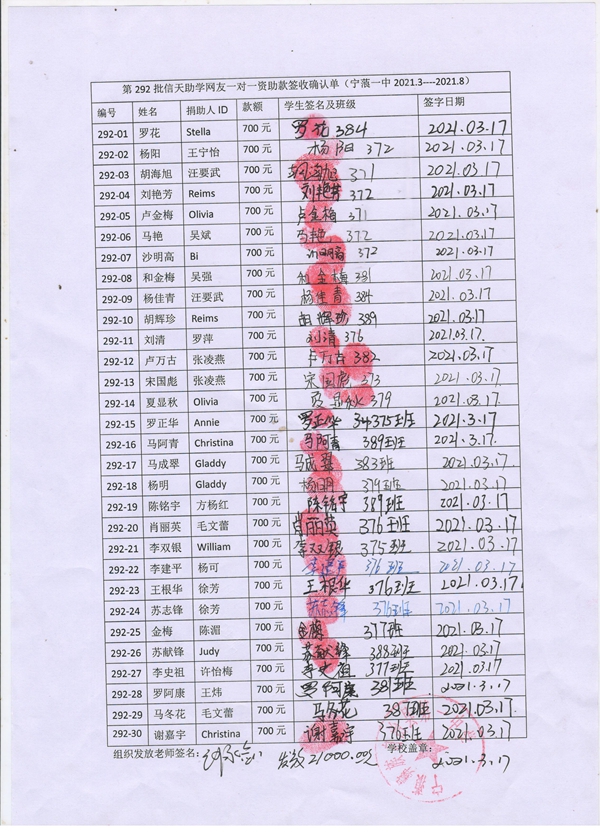 第 292 批信天助学网友一对一资助款签收确认单（宁蒗一中 2021.3----2021.8）
编号 姓名 捐助人 ID 款额 学生签名及班级 签字日期
292-01 罗花 Stella 700 元 罗花 384 2021.03.17
292-02 杨阳 王宁怡 700 元 杨阳 372 2021.03.17
292-03 胡海旭 汪要武 700 元 胡海旭 371 2021.03.17
292-04 刘艳芳 Reims 700 元 刘艳芳 372 2021.03.17
292-05 卢金梅 Olivia 700 元 卢金梅 371 2021.03.17
292-06 马艳 吴斌 700 元 马艳 372 2021.03.17
292-07 沙明高 Bi 700 元 沙明高 372 2021.03.17
292-08 和金梅 吴强 700 元 和金梅 381 2021.03.17
292-09 杨佳青 汪要武 700 元 杨佳青 384 2021.03.17
292-10 胡辉珍 Reims 700 元 胡辉珍 389 2021.03.17
292-11 刘清 罗萍 700 元 刘清 376 2021.03.17.
292-12 卢万古 张凌燕 700 元 卢万古 382 2021.03.17
292-13 宋国彪 张凌燕 700 元 宋国彪 373 2021.03.17
292-14 夏显秋 Olivia 700 元 夏显秋 379 2021.03.17
292-15 罗正华 Annie 700 元 罗正华 375班 2021.3.17
292-16 马阿青 Christina 700 元 马阿青 389班 2021.3.17.
292-17 马成翠 Gladdy 700 元 马成翠 383班 2021.03.17.
292-18 杨明 Gladdy 700 元 杨明 379班 2021.03.17.
292-19 陈铭宇 方杨红 700 元 陈铭宇 389班 2021.03.17.
292-20 肖丽英 毛文蕾 700 元 肖丽英 376班 2021.03.17
292-21 李双银 William 700 元 李双银 375班 2021.03.17
292-22 李建平 杨可 700 元 李建平 376班 2021.03.17
292-23 王根华 徐芳 700 元 王根华 376班 2021.03.17
292-24 苏志锋 徐芳 700 元 苏志锋 376班 2021.03.17
292-25 金梅 陈湄 700 元 金梅 377班 2021.03.17
292-26 苏献锋 Judy 700 元 苏献锋 388班 2021.03.17
292-27 李史祖 许怡梅 700 元 李史祖 377班 2021.03.17
292-28 罗阿康 王炜 700 元 罗阿康 381班 2021.3.17
292-29 马冬花 毛文蕾 700 元 马冬花 381班 2021.03.17
292-30 谢嘉宇 Christina 700 元 谢嘉宇 376班 2021.03.17
组织发放老师签名： 发放21000.00元 学校盖章： 2021.3.17